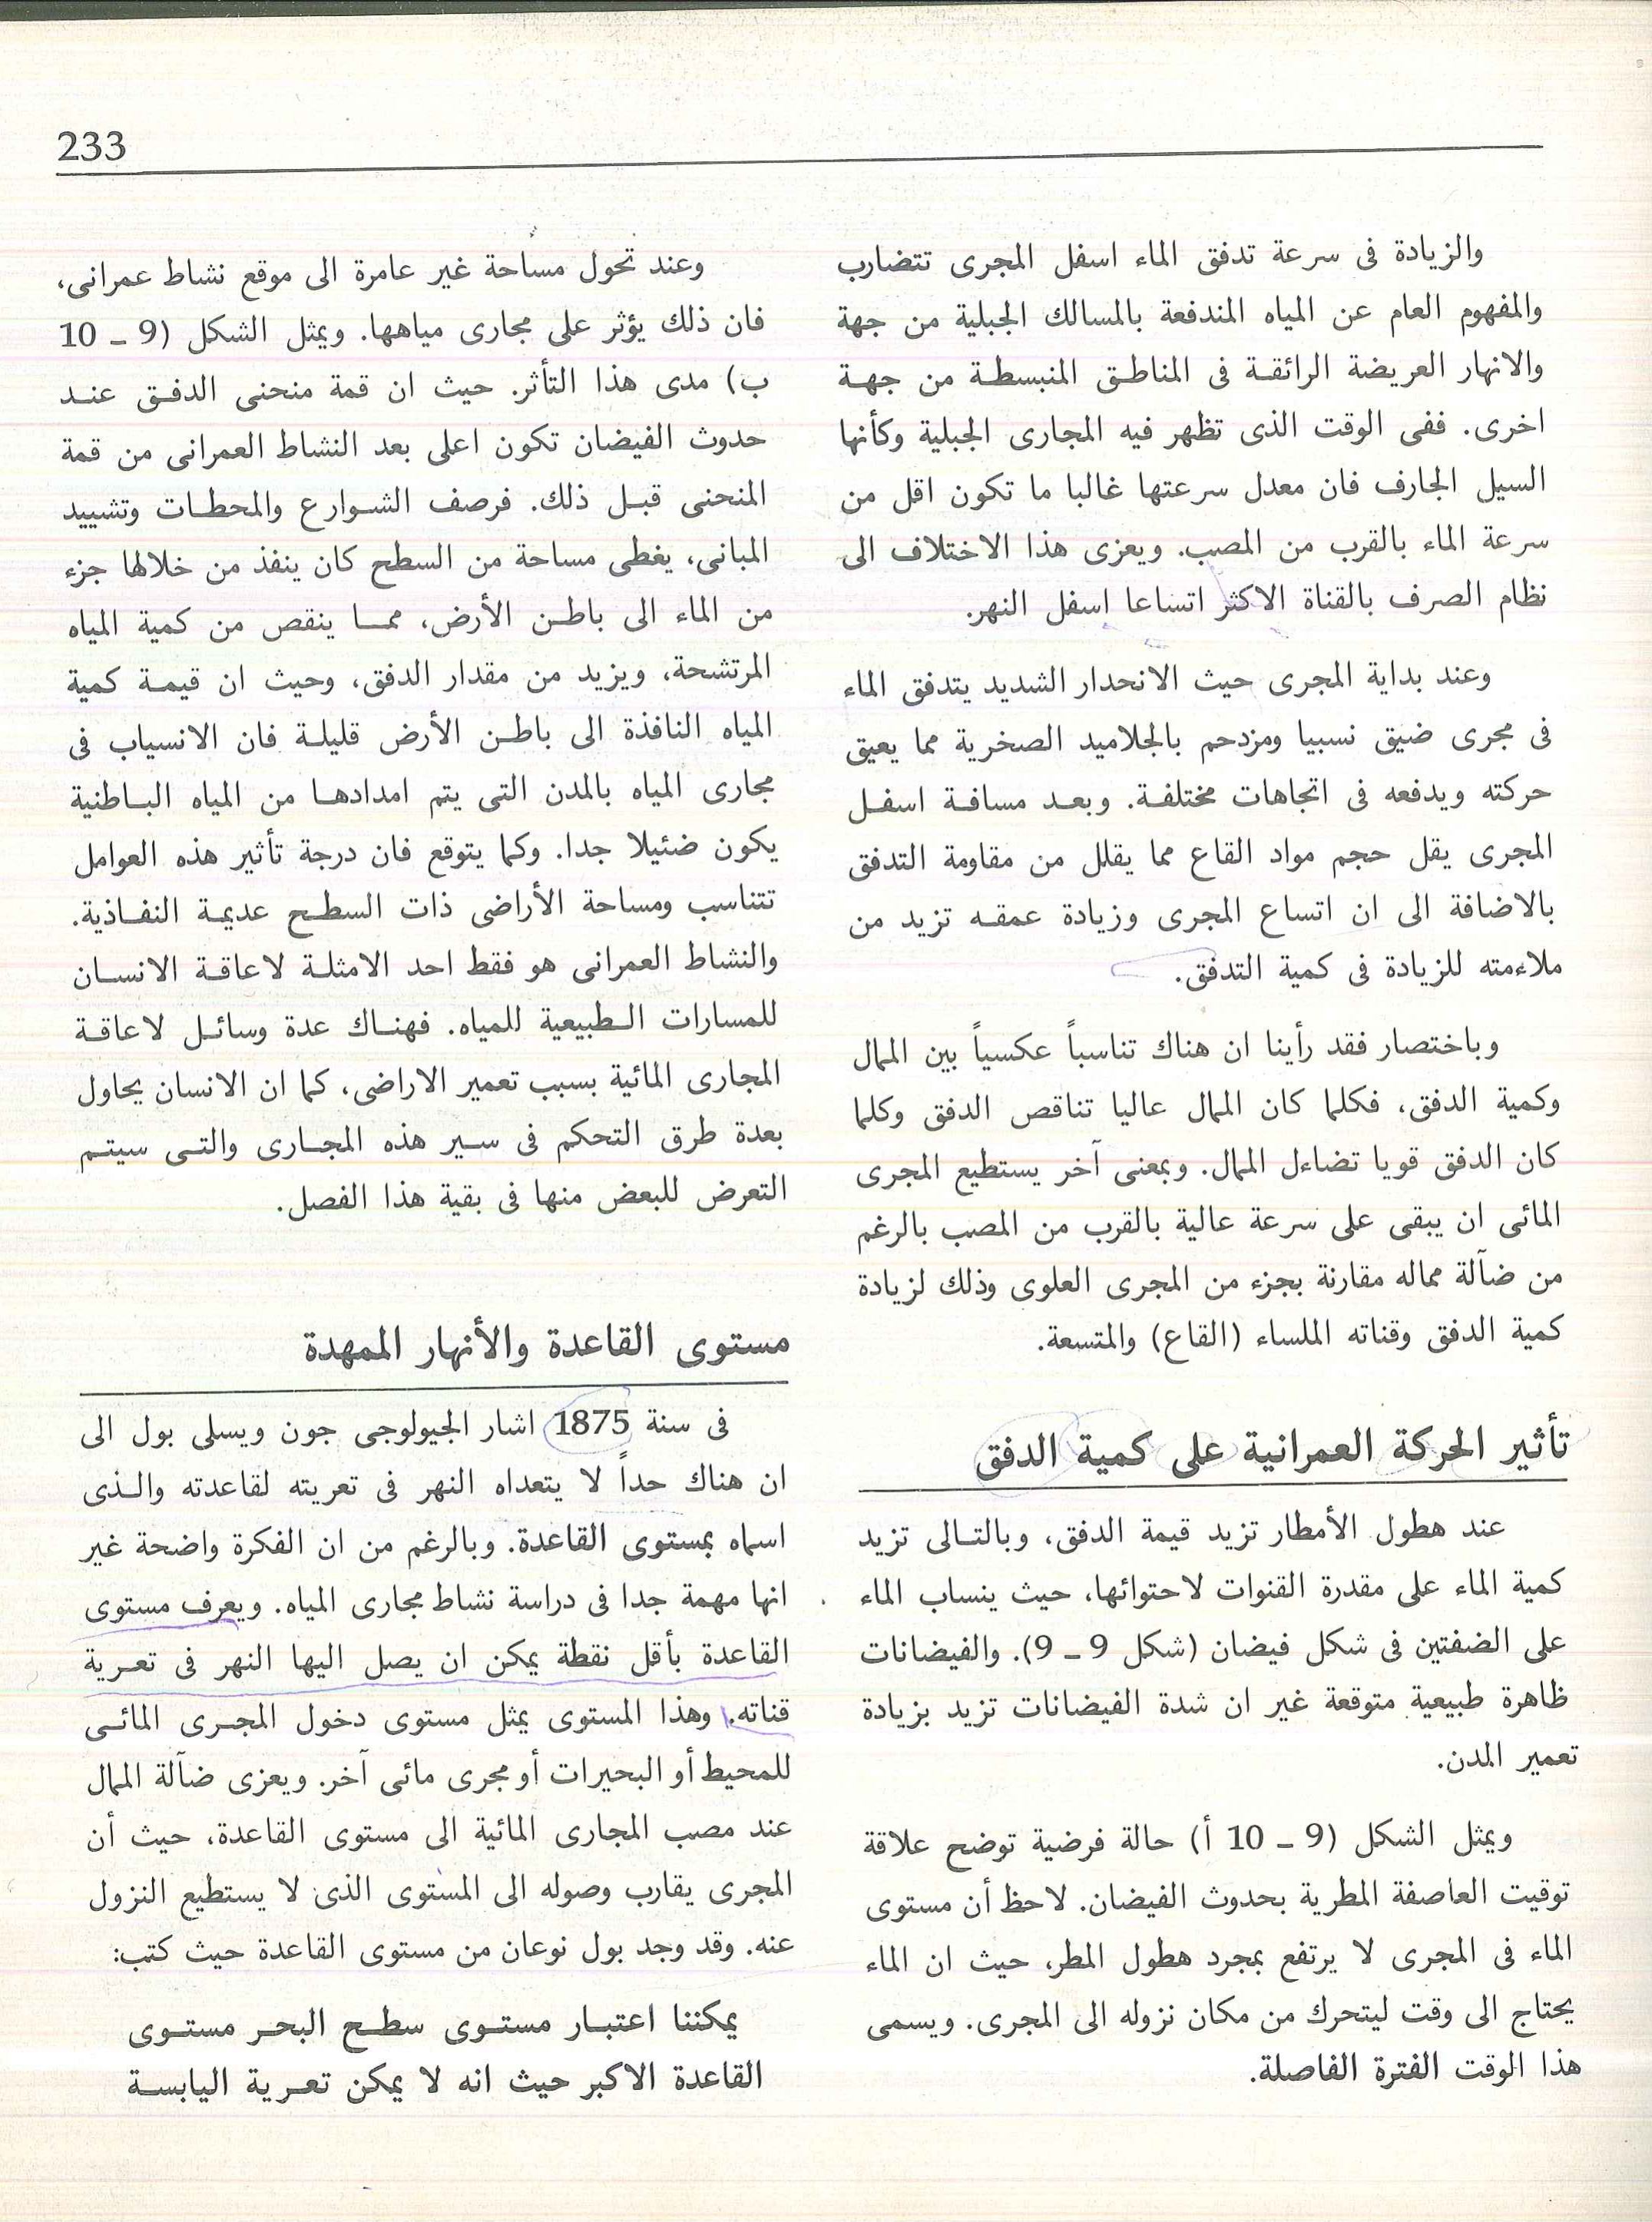 233
والزيادة فى سرعة تدفق الماء اسفل المجرى تتضارب
والمفهوم العام عن المياه المندفعة بالمسالك الجبلية من جهة
والانهار العريضة الرائقة فى المناطق المنبسطة من جهة
اخرى. ففى الوقت الذى تظهر فيه المجارى الجبلية وكأنها
السيل الجارف فان معدل سرعتها غالبا ما تكون اقل من
سرعة الماء بالقرب من المصب. ويعزى هذا الاختلاف الى
نظام الصرف بالقناة الاكثر اتساعا اسفل النهر.
وعند بداية المجرى حيث الانحدار الشديد يتدفق الماء
فى مجرى ضيق نسبيا ومزدحم بالجلاميد الصخرية مما يعيق
حركته ويدفعه فى اتجاهات مختلفة. وبعد مسافة اسفل
المجرى يقل حجم مواد القاع مما يقلل من مقاومة التدفق
بالاضافة الى ان اتساع المجرى وزيادة عمقه تزيد من
ملاءمته للزيادة فى كمية التدفق.
وباختصار فقد رأينا ان هناك تناسباً عكسياً بين الممال
وكمية الدفق، فكلما كان الممال عاليا تناقص الدفق وكلما
كان الدفق قويا تضاءل الممال. وبمعنى آخر يستطيع المجرى
المائى ان يبقى على سرعة عالية بالقرب من المصب بالرغم
من ضآلة مماله مقارنة بجزء من المجرى العلوى وذلك لزيادة
كمية الدفق وقناته الملساء (القاع) والمتسعة.
تأثير الحركة العمرانية على كمية الدفق
عند هطول الأمطار تزيد قيمة الدفق، وبالتالى تزيد
كمية الماء على مقدرة القنوات لاحتوائها، حيث ينساب الماء
على الضفتين فى شكل فيضان (شكل 9 ـ 9). والفيضانات
ظاهرة طبيعية متوقعة غير ان شدة الفيضانات تزيد بزيادة
تعمير المدن.
ويمثل الشكل (9 ـ 10 أ) حالة فرضية توضح علاقة
توقيت العاصفة المطرية بحدوث الفيضان. لاحظ أن مستوى
الماء فى المجرى لا يرتفع بمجرد هطول المطر، حيث ان الماء
يحتاج الى وقت ليتحرك من مكان نزوله الى المجرى. ويسمى
هذا الوقت الفترة الفاصلة.
وعند تحول مساحة غير عامرة الى موقع نشاط عمرانى،
فان ذلك يؤثر على مجارى مياهها. ويمثل الشكل (9 ـ 10
ب) مدى هذا التأثر. حيث ان قمة منحنى الدفق عند
حدوث الفيضان تكون اعلى بعد النشاط العمرانى من قمة
المنحنى قبل ذلك. فرصف الشوارع والمحطات وتشييد
المبانى، يغطى مساحة من السطح كان ينفذ من خلالها جزء
من الماء الى باطن الأرض، مما ينقص من كمية المياه
المرتشحة، ويزيد من مقدار الدفق، وحيث ان قيمة كمية
المياه النافذة الى باطن الأرض قليلة فان الانسياب فى
مجارى المياه بالمدن التى يتم امدادها من المياه الباطنية
يكون ضئيلا جدا. وكما يتوقع فان درجة تأثير هذه العوامل
تتناسب ومساحة الأراضى ذات السطح عديمة النفاذية.
والنشاط العمرانى هو فقط احد الامثلة لاعاقة الانسان
للمسارات الطبيعية للمياه. فهناك عدة وسائل لاعاقة
المجارى المائية بسبب تعمير الاراضى، كما ان الانسان يحاول
بعدة طرق التحكم فى سير هذه المجارى والتى سيتم
التعرض للبعض منها فى بقية هذا الفصل.
مستوى القاعدة والأنهار الممهدة
فى سنة 1875 اشار الجيولوجى جون ويسلى بول الى
ان هناك حداً لا يتعداه النهر فى تعريته لقاعدته والذى
اسماه بمستوى القاعدة. وبالرغم من ان الفكرة واضحة غير
انها مهمة جدا فى دراسة نشاط مجارى المياه. ويعرف مستوى
القاعدة بأقل نقطة يمكن ان يصل اليها النهر فى تعرية
قناته. وهذا المستوى يمثل مستوى دخول المجرى المائى
للمحيط أو البحيرات أو مجرى مائى آخر. ويعزى ضآلة الممال
عند مصب المجارى المائية الى مستوى القاعدة، حيث أن
المجرى يقارب وصوله الى المستوى الذى لا يستطيع النزول
عنه. وقد وجد بول نوعان من مستوى القاعدة حيث كتب:
يمكننا اعتبار مستوى سطح البحر مستوى
القاعدة الاكبر حيث انه لا يمكن تعرية اليابسة